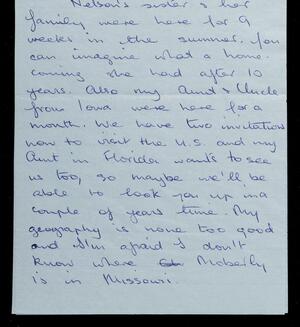 Nelson's sister & her
family were here for 9
weeks in the summer. You
can imagine what a home-
coming she had after 10
years. Also my Aunt & Uncle
from Iowa were here for a
month. We have two invitations
now to visit the U.S. and my
Aunt in Florida wants to see
us too, so maybe we'll be
able to look you up in a
couple of years time. My
geography is none too good
and I'm afraid I don't
know where Moberly
is in Missouri.